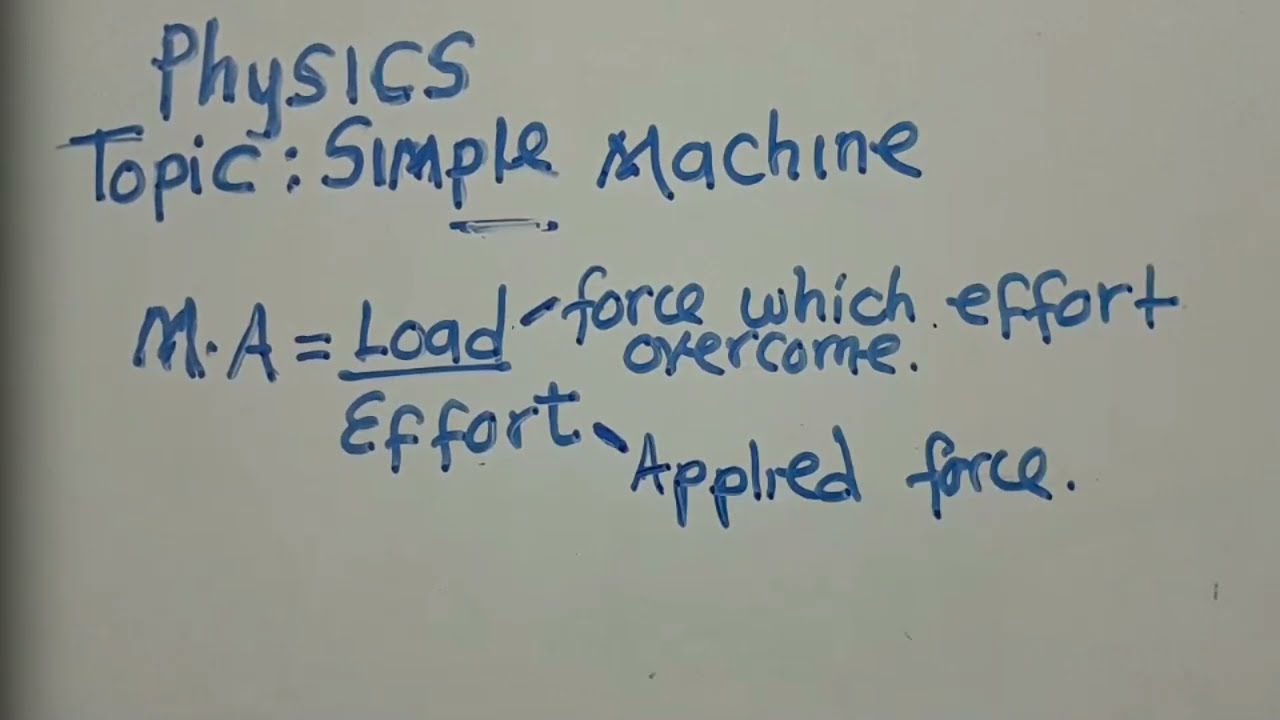 Physics
Topic: Simple Machine
M.A = Load - force which effort
overcome.
Effort - Applied force.